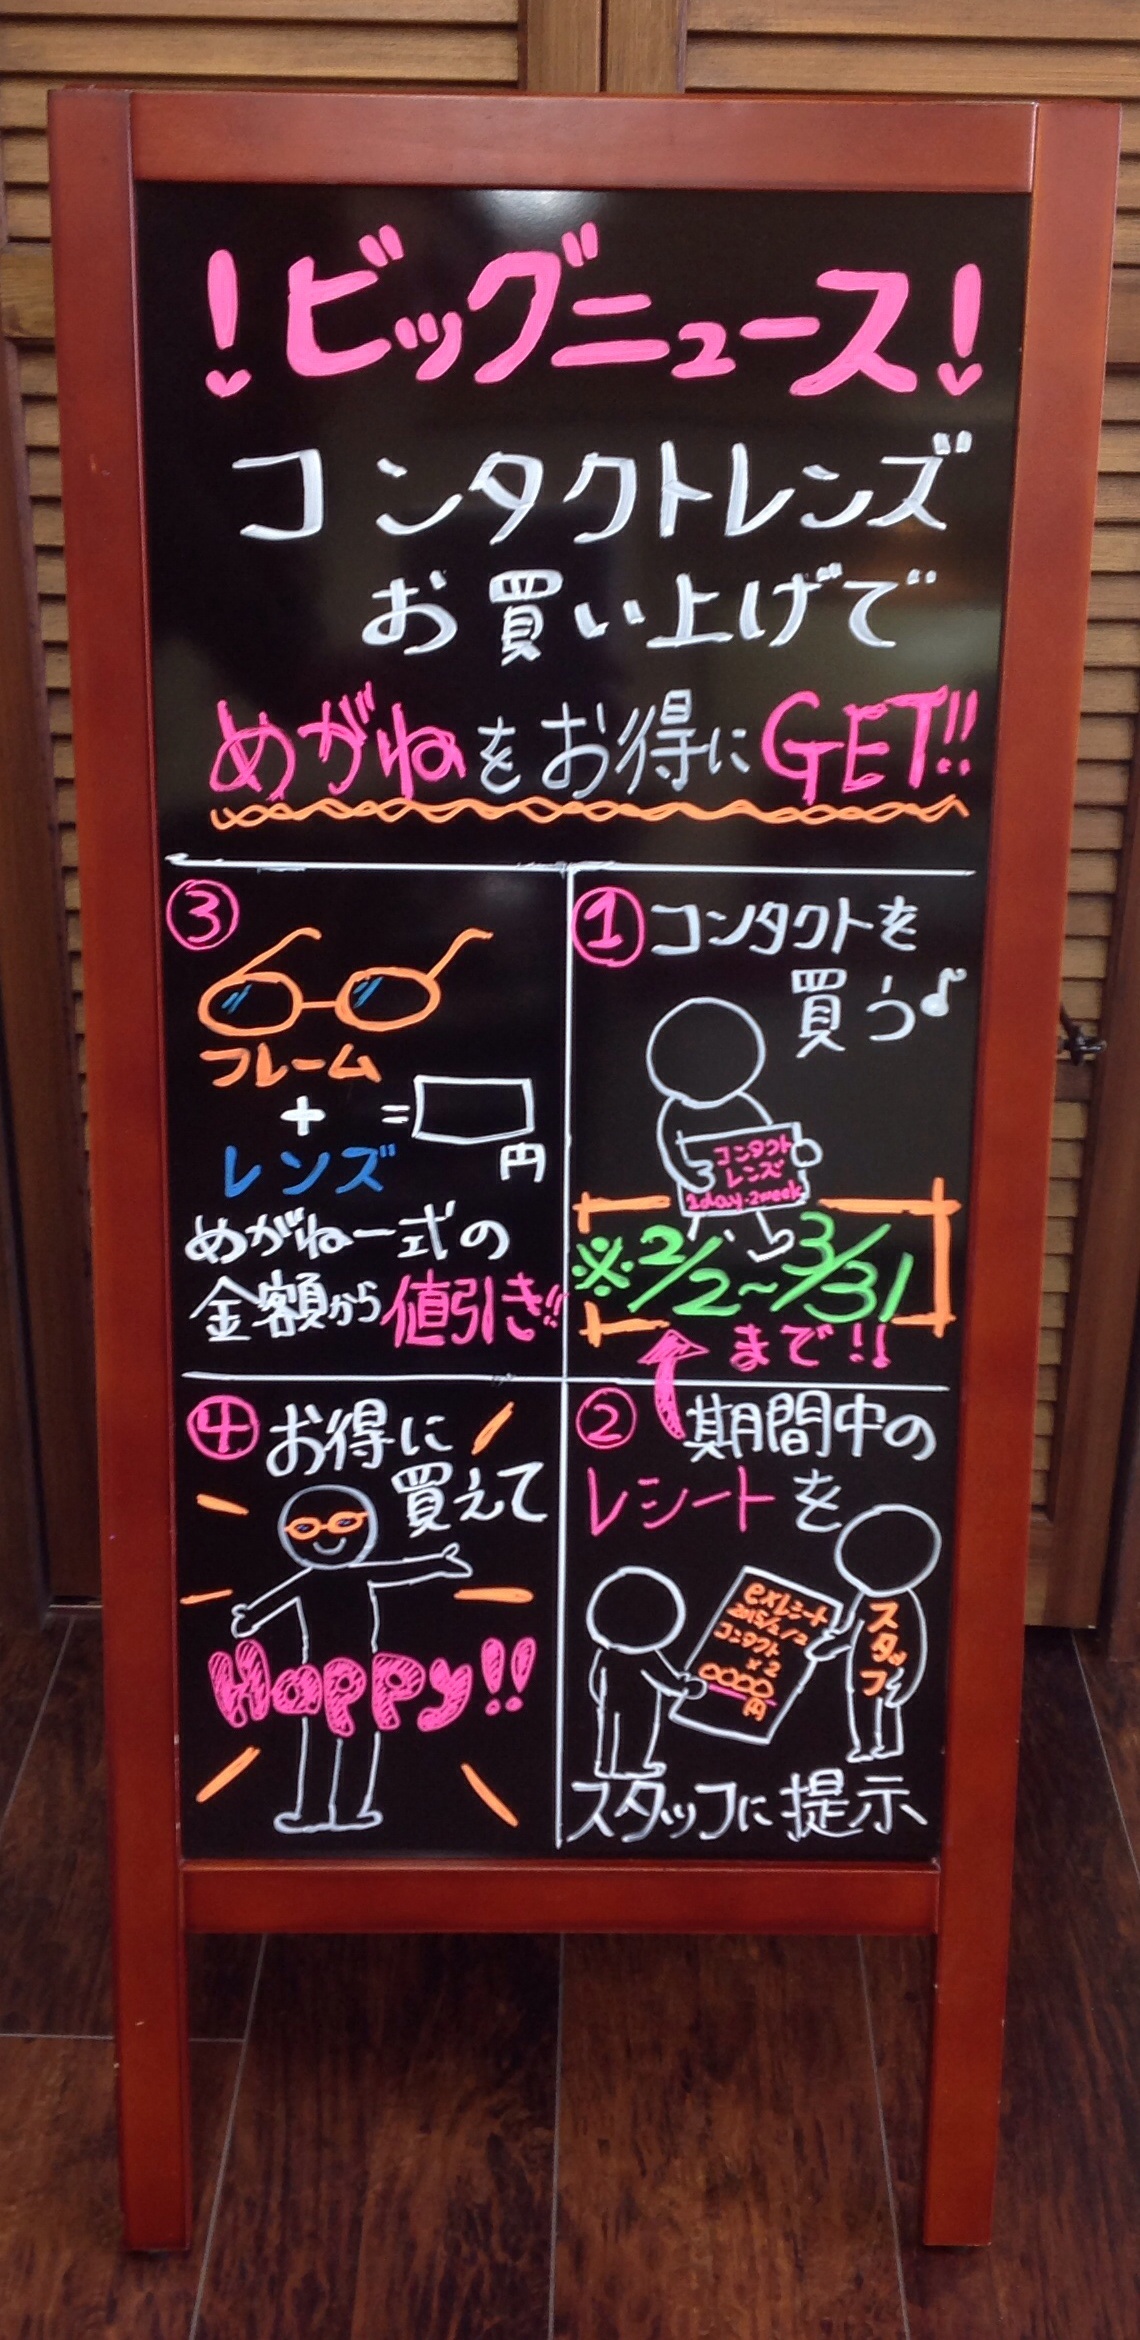 ！ビッグニュース！
コンタクトレンズ
お買い上げで
めがねをお得にGET!!
①コンタクトを
買う♪
コンタクト
レンズ
1day・2week
※2/2~3/31
まで!!
②期間中の
レシートを
exレシート
2015/2/2
コンタクト
×2
○○○○
円
スタッフ
スタッフに提示
③
フレーム
+ =
円
レンズ
めがね一式の
金額から値引き!!
④お得に
買えて
Happy!!